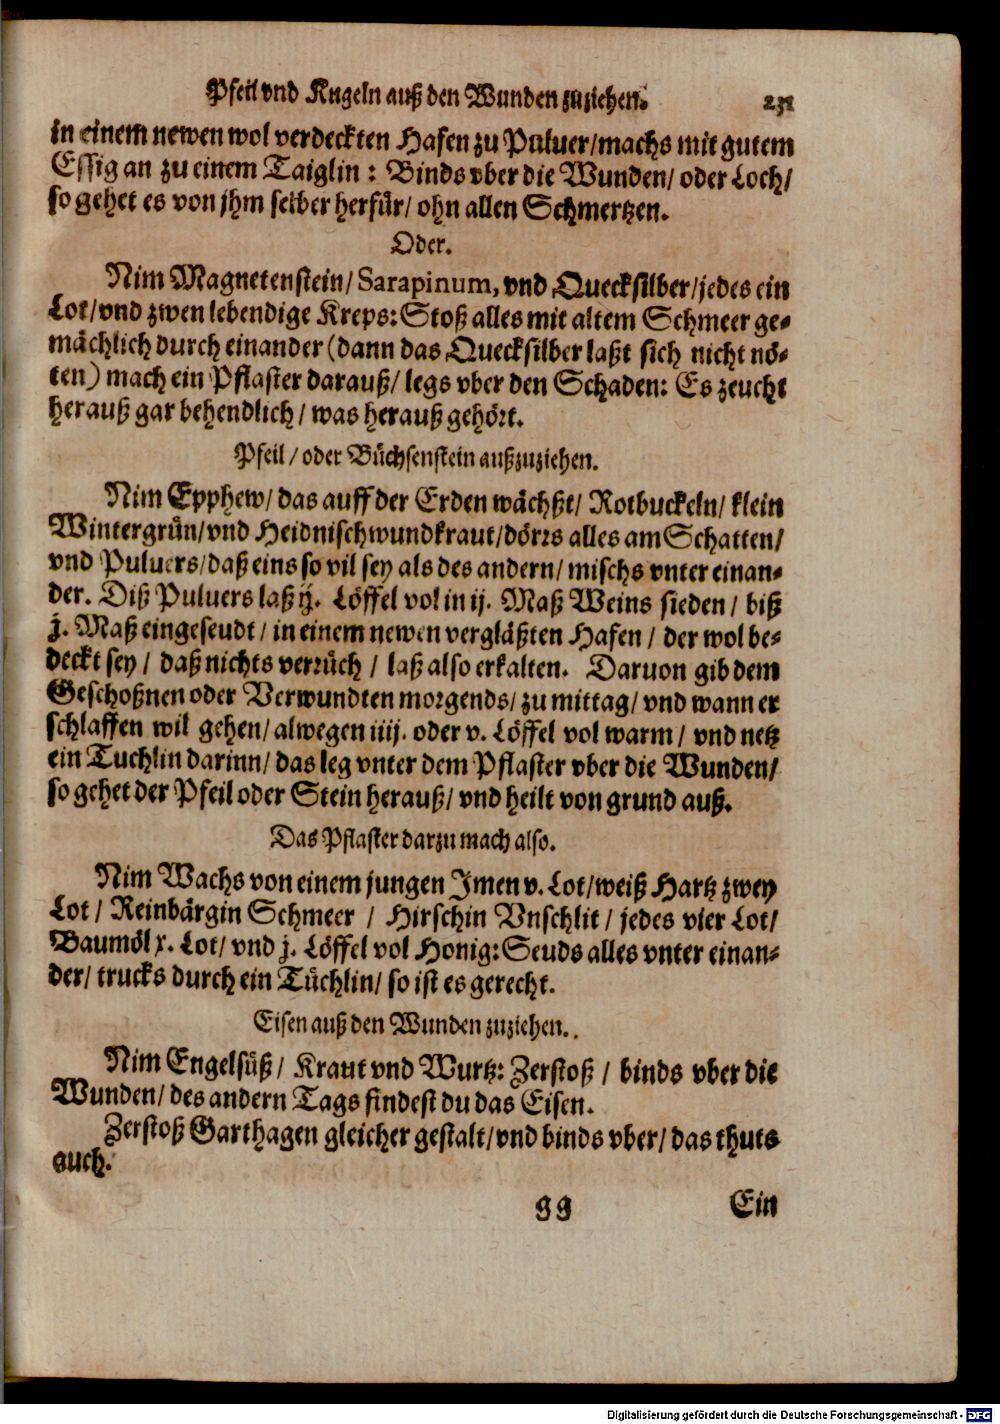 Pfeil vnd Kugeln auß den Wunden zuziehen. 231
in einem newen wol verdeckten Hafen zu Puluer/machs mit gutem
Essig an zu einem Taiglin: Binds vber die Wunden/ oder Loch/
so gehet es von jhm selber herfür/ ohn allen Schmertzen.
Oder.
Nim Magnetenstein/ Sarapinum, vnd Quecksilber/jedes ein
Lot/vnd zwen lebendige Kreps: Stoß alles mit altem Schmeer ge-
mächlich durch einander (dann das Quecksilber laßt sich nicht nö-
ten) mach ein Pflaster darauß/ legs vber den Schaden: Es zeucht
herauß gar behendlich/ was herauß gehört.
Pfeil/oder Büchsenstein außzuziehen.
Nim Epphew/ das auff der Erden wächßt/ Rotbuckeln/ klein
Wintergrün/vnd Heidnischwundkraut/dörrs alles am Schatten/
vnd Puluers/daß eins so vil sey als des andern/ mischs vnter einan-
der. Diß Puluers laß ij. Löffel vol in ij. Maß Weins sieden/ biß
j. Maß eingeseudt/ in einem newen vergläßten Hafen/ der wol be-
deckt sey/ daß nichts verrüch/ laß also erkalten. Daruon gib dem
Geschoßnen oder Verwundten morgends/ zu mittag/ vnd wann er
schlaffen wil gehen/ alwegen iiij. oder v. Löffel vol warm/ vnd netz
ein Tuchlin darinn/ das leg vnter dem Pflaster vber die Wunden/
so gehet der Pfeil oder Stein herauß/ vnd heilt von grund auß.
Das Pflaster darzu mach also.
Nim Wachs von einem jungen Imen v. Lot/weiß Hartz zwey
Lot/ Reinbärgin Schmeer/ Hirschin Vnschlit/ jedes vier Lot/
Baumöl x. Lot/ vnd j. Löffel vol Honig: Seuds alles vnter einan-
der/ trucks durch ein Tüchlin/ so ist es gerecht.
Eisen auß den Wunden zuziehen.
Nim Engelsüß/ Kraut vnd Wurtz: Zerstoß/ binds vber die
Wunden/ des andern Tags findest du das Eisen.
Zerstoß Garthagen gleicher gestalt/vnd binds vber/ das thuts
auch.
gg Ein
Digitalisierung gefördert durch die Deutsche Forschungsgemeinschaft - DFG